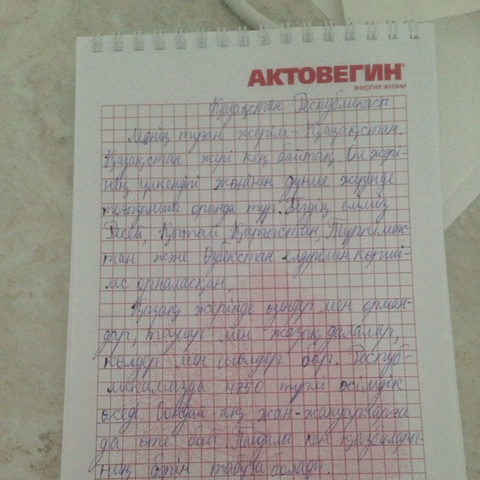 АКТОВЕГИН®
энергия жизни
Қазақстан Республикасы
Менің туған жерім - Қазақстан.
Қазақстан жері кең байтақ. Ол жері-
нің үлкендігі жөнінен дүние жүзінде
тоғызыншы орында тұр. Біздің еліміз
Ресей, Қытай, Қырғызстан, Түркімен-
стан және Өзбекстан елдерімен көрші-
лес орналасқан.
Қазақ жерінде өзендер мен орман-
дар, таулар мен жазық далалар,
көлдер мен шөлдер бар. Респуб-
ликамызда 4750 түрлі өсімдік
өседі. Сондай-ақ жан-жануарларға
да өте бай. Пайдалы кен қазбалары-
ның бәрін табуға болады.